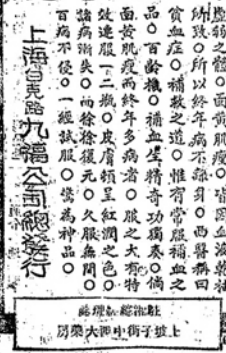 虛弱之體○面黃肌瘦○皆因血液乾枯
所致○所以終年病不離身○西醫稱曰
貧血症○補救之道○惟有常服補血之
品○百齡機○補血生精奇功獨奏○倘
面黃肌瘦而終年多病者○服之大有特
效連服一二瓶○皮膚頓呈紅潤之色○
諸病漸失○而徐徐復元○久服無間○
百病不侵○一經試服○驚為神品○
上海白克路九福公司總發行
駐湘總經理處
上坡子街中西大藥房